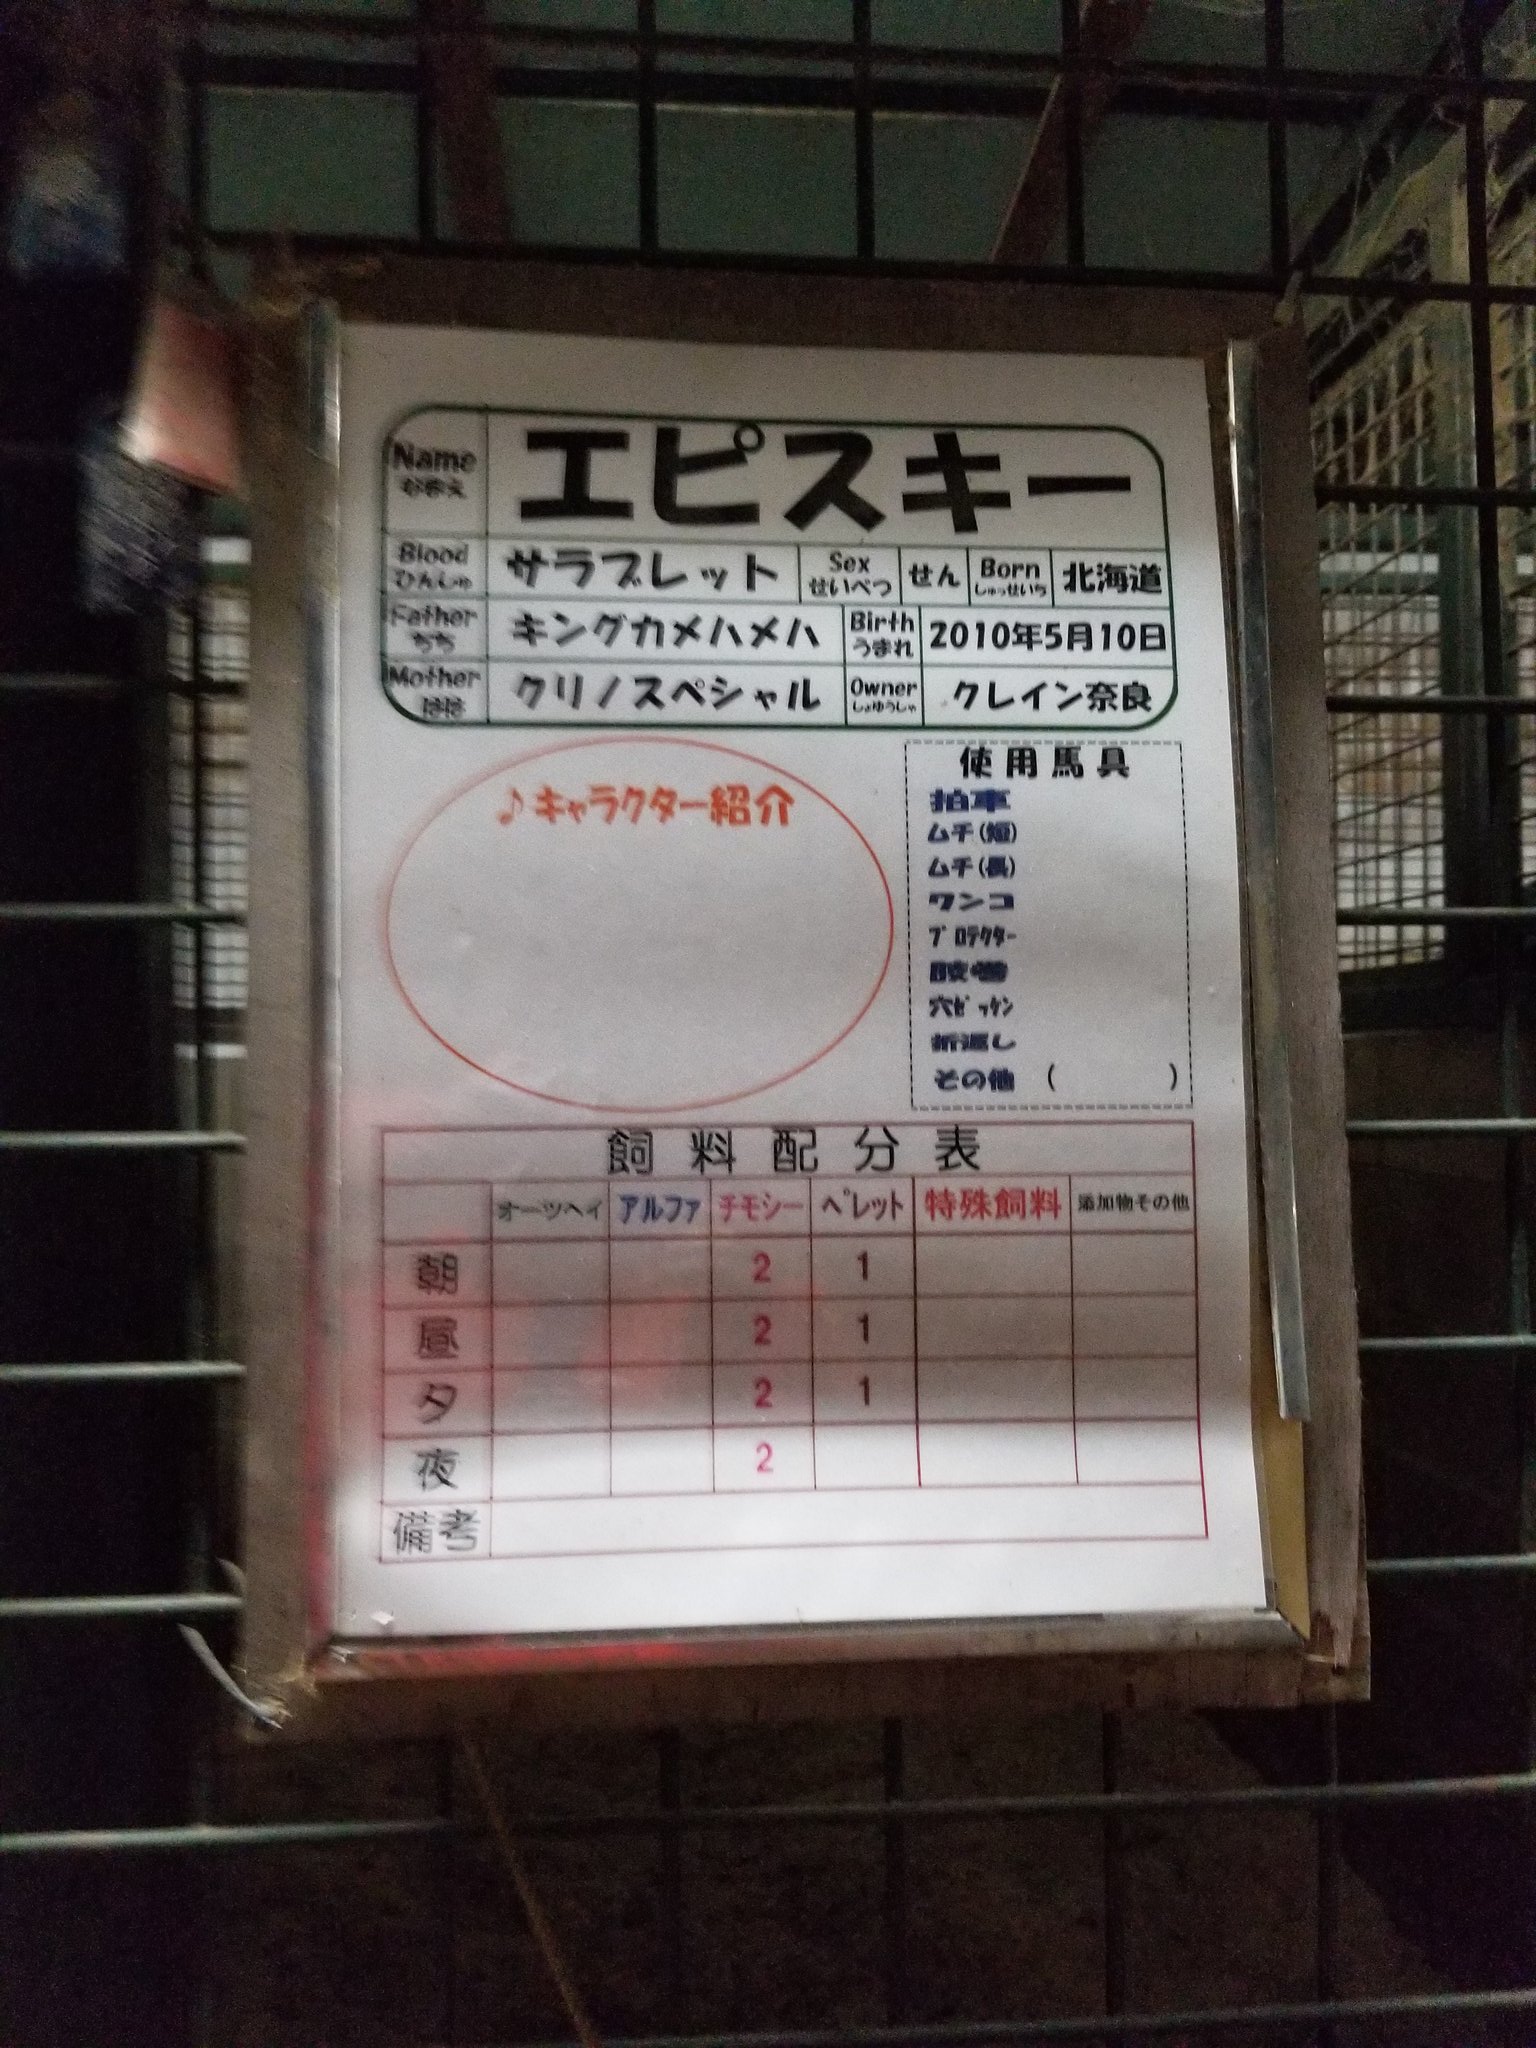 Name なまえ エピスキー
Blood ひんしゅ サラブレット Sex せいべつ せん Born しゅっせいち 北海道
Father ちち キングカメハメハ Birth うまれ 2010年5月10日
Mother はは クリノスペシャル Owner しょゆうしゃ クレイン奈良
♪キャラクター紹介
使用馬具
拍車
ムチ(短)
ムチ(長)
ワンコ
プロテクター
肢巻
穴ピッケン
折返し
その他 ( )
飼料配分表
オーツヘイ アルファ チモシー ペレット 特殊飼料 添加物その他
朝 2 1
昼 2 1
夕 2 1
夜 2
備考